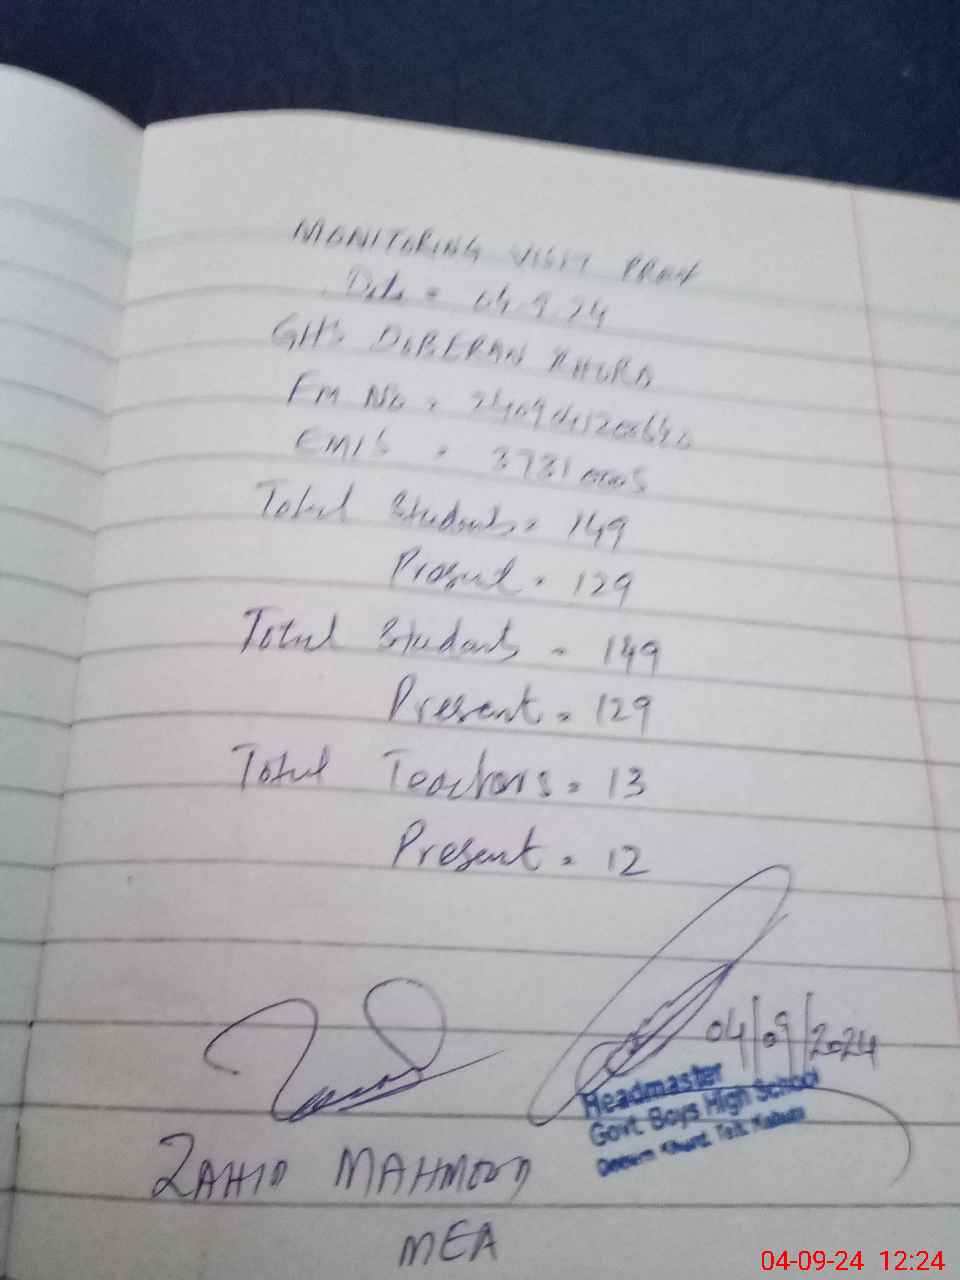 MONITORING VISIT PROOF
Date = 04.9.24
GHS DOBERAN KHURD
FM No =
EMIS = 37310005
Total Students = 149
Present = 129
Total Students = 149
Present = 129
Total Teachers = 13
Present = 12
04/09/2024
Headmaster
Govt. Boys High School
ZAHID MAHMOOD
MEA
04-09-24 12:24